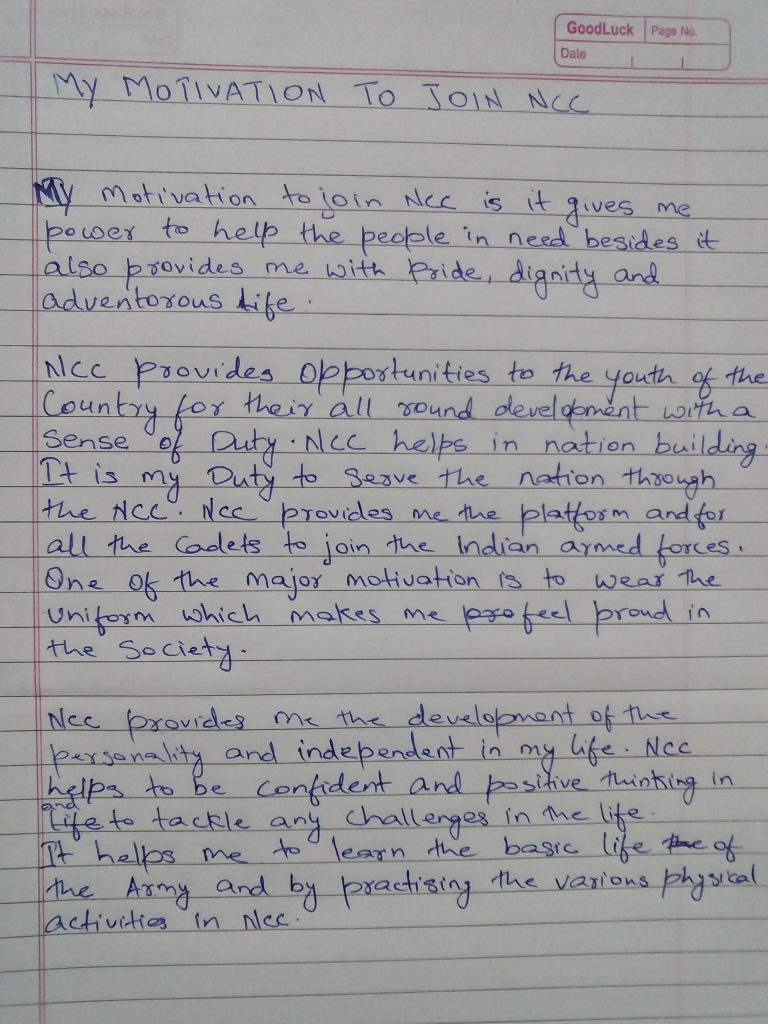 GoodLuck Page No.
Date
MY MOTIVATION TO JOIN NCC
My motivation to join NCC is it gives me
power to help the people in need besides it
also provides me with Pride, dignity and
adventorous life.
NCC provides opportunities to the youth of the
Country for their all round development with a
Sense of Duty. NCC helps in nation building.
It is my Duty to serve the nation through
the NCC. NCC provides me the platform and for
all the Cadets to join the Indian armed forces.
One of the major motivation is to wear the
Uniform which makes me pro feel proud in
the Society.
NCC provides me the development of the
personality and independent in my life. NCC
helps to be confident and positive thinking in
and
life to tackle any challenges in the life.
It helps me to learn the basic life the of
the Army and by practising the various physical
activities in NCC.